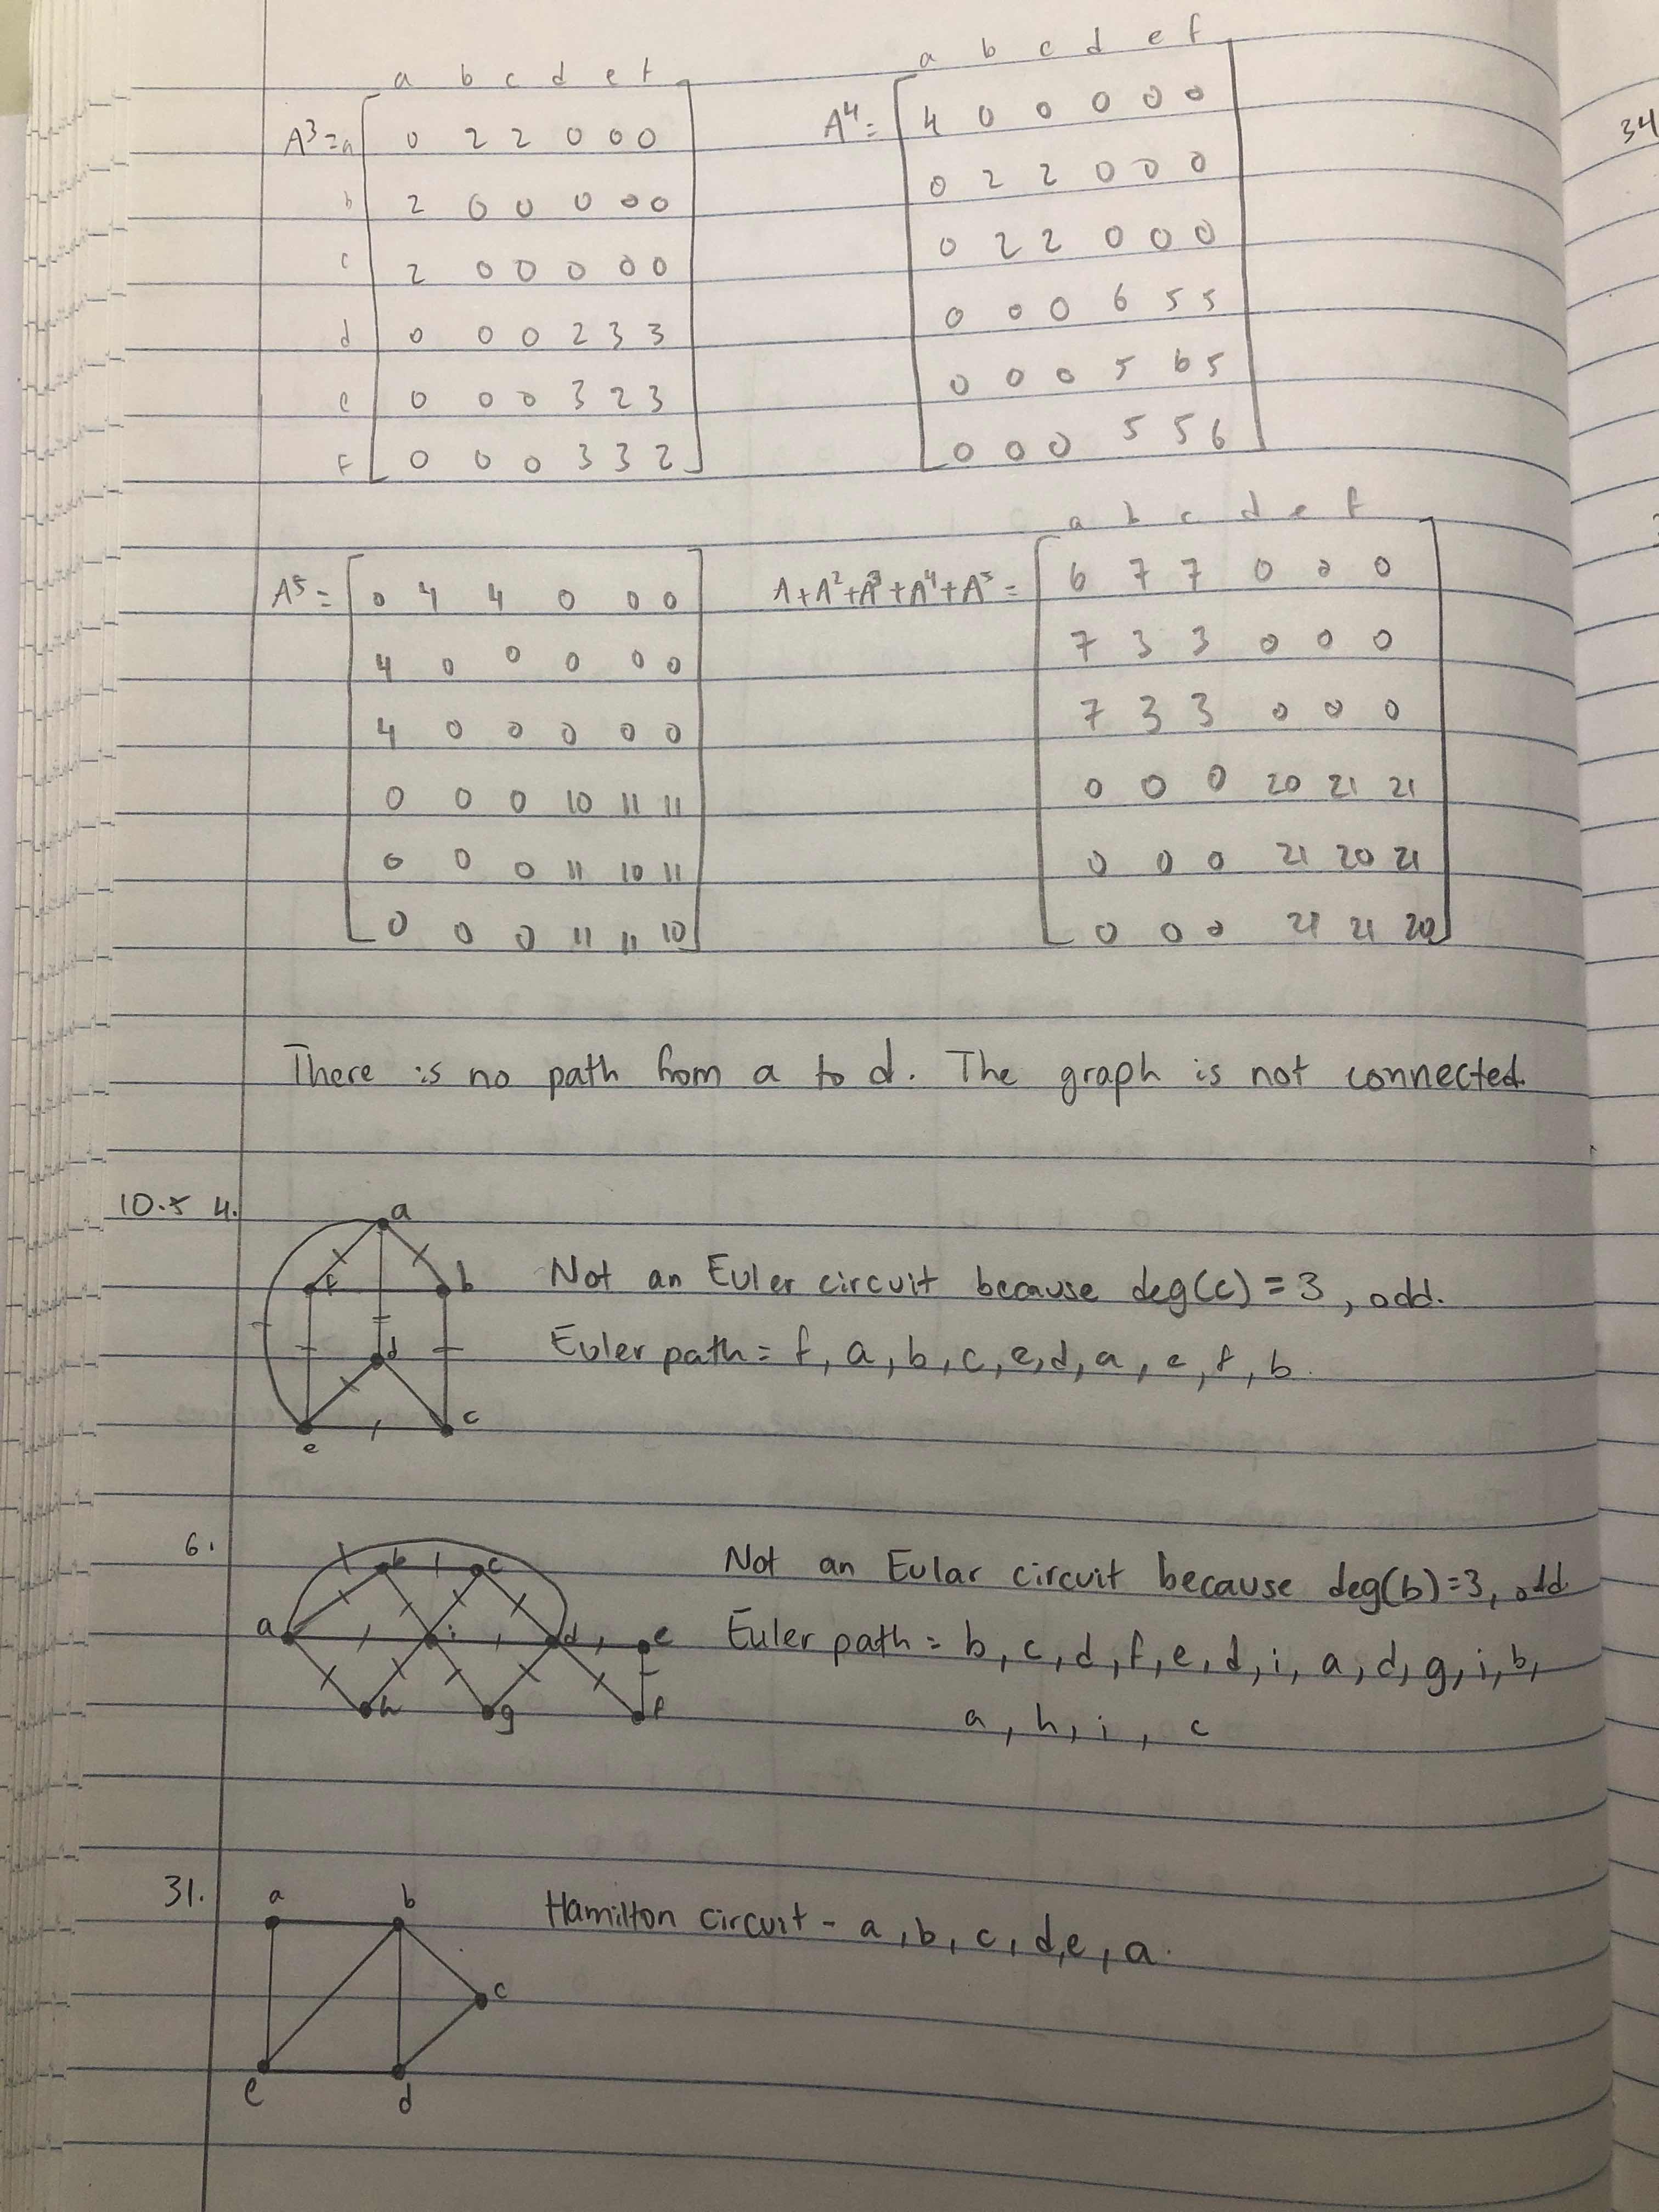 a b c d e f
A³ = a 0 2 2 0 0 0
b 2 0 0 0 0 0
c 2 0 0 0 0 0
d 0 0 0 2 3 3
e 0 0 0 3 2 3
f 0 0 0 3 3 2
a b c d e f
A⁴ = 4 0 0 0 0 0
0 2 2 0 0 0
0 2 2 0 0 0
0 0 0 6 5 5
0 0 0 5 6 5
0 0 0 5 5 6
34
A⁵ = 0 4 4 0 0 0
4 0 0 0 0 0
4 0 0 0 0 0
0 0 0 10 11 11
0 0 0 11 10 11
0 0 0 11 11 10
a b c d e f
A+A²+A³+A⁴+A⁵ = 6 7 7 0 0 0
7 3 3 0 0 0
7 3 3 0 0 0
0 0 0 20 21 21
0 0 0 21 20 21
0 0 0 21 21 20
There is no path from a to d. The graph is not connected.
10.5 4.
a
f b
d
e c
Not an Euler circuit because deg(c) = 3, odd.
Euler path = f, a, b, c, e, d, a, e, f, b.
6.
b c
a i d e
h g f
Not an Eular circuit because deg(b)=3, odd
Euler path = b, c, d, f, e, d, i, a, d, g, i, b,
a, h, i, c
31.
a b
c
e d
Hamilton circuit - a, b, c, d, e, a.